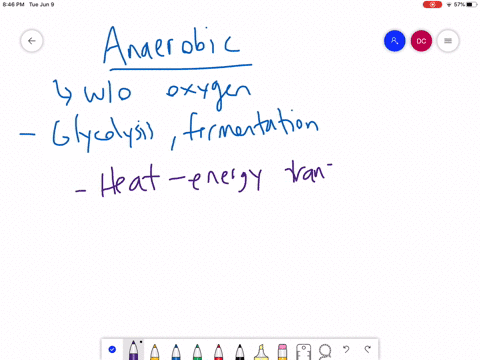 8:46 PM Tue Jun 9 57%
DC
Anaerobic
↳ w/o oxygen
- Glycolysis, fermentation
- Heat - energy tran-